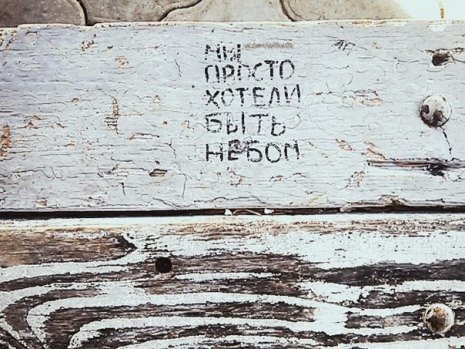 МЫ
ПРОСТО
ХОТЕЛИ
БЫТЬ
НЕБОМ